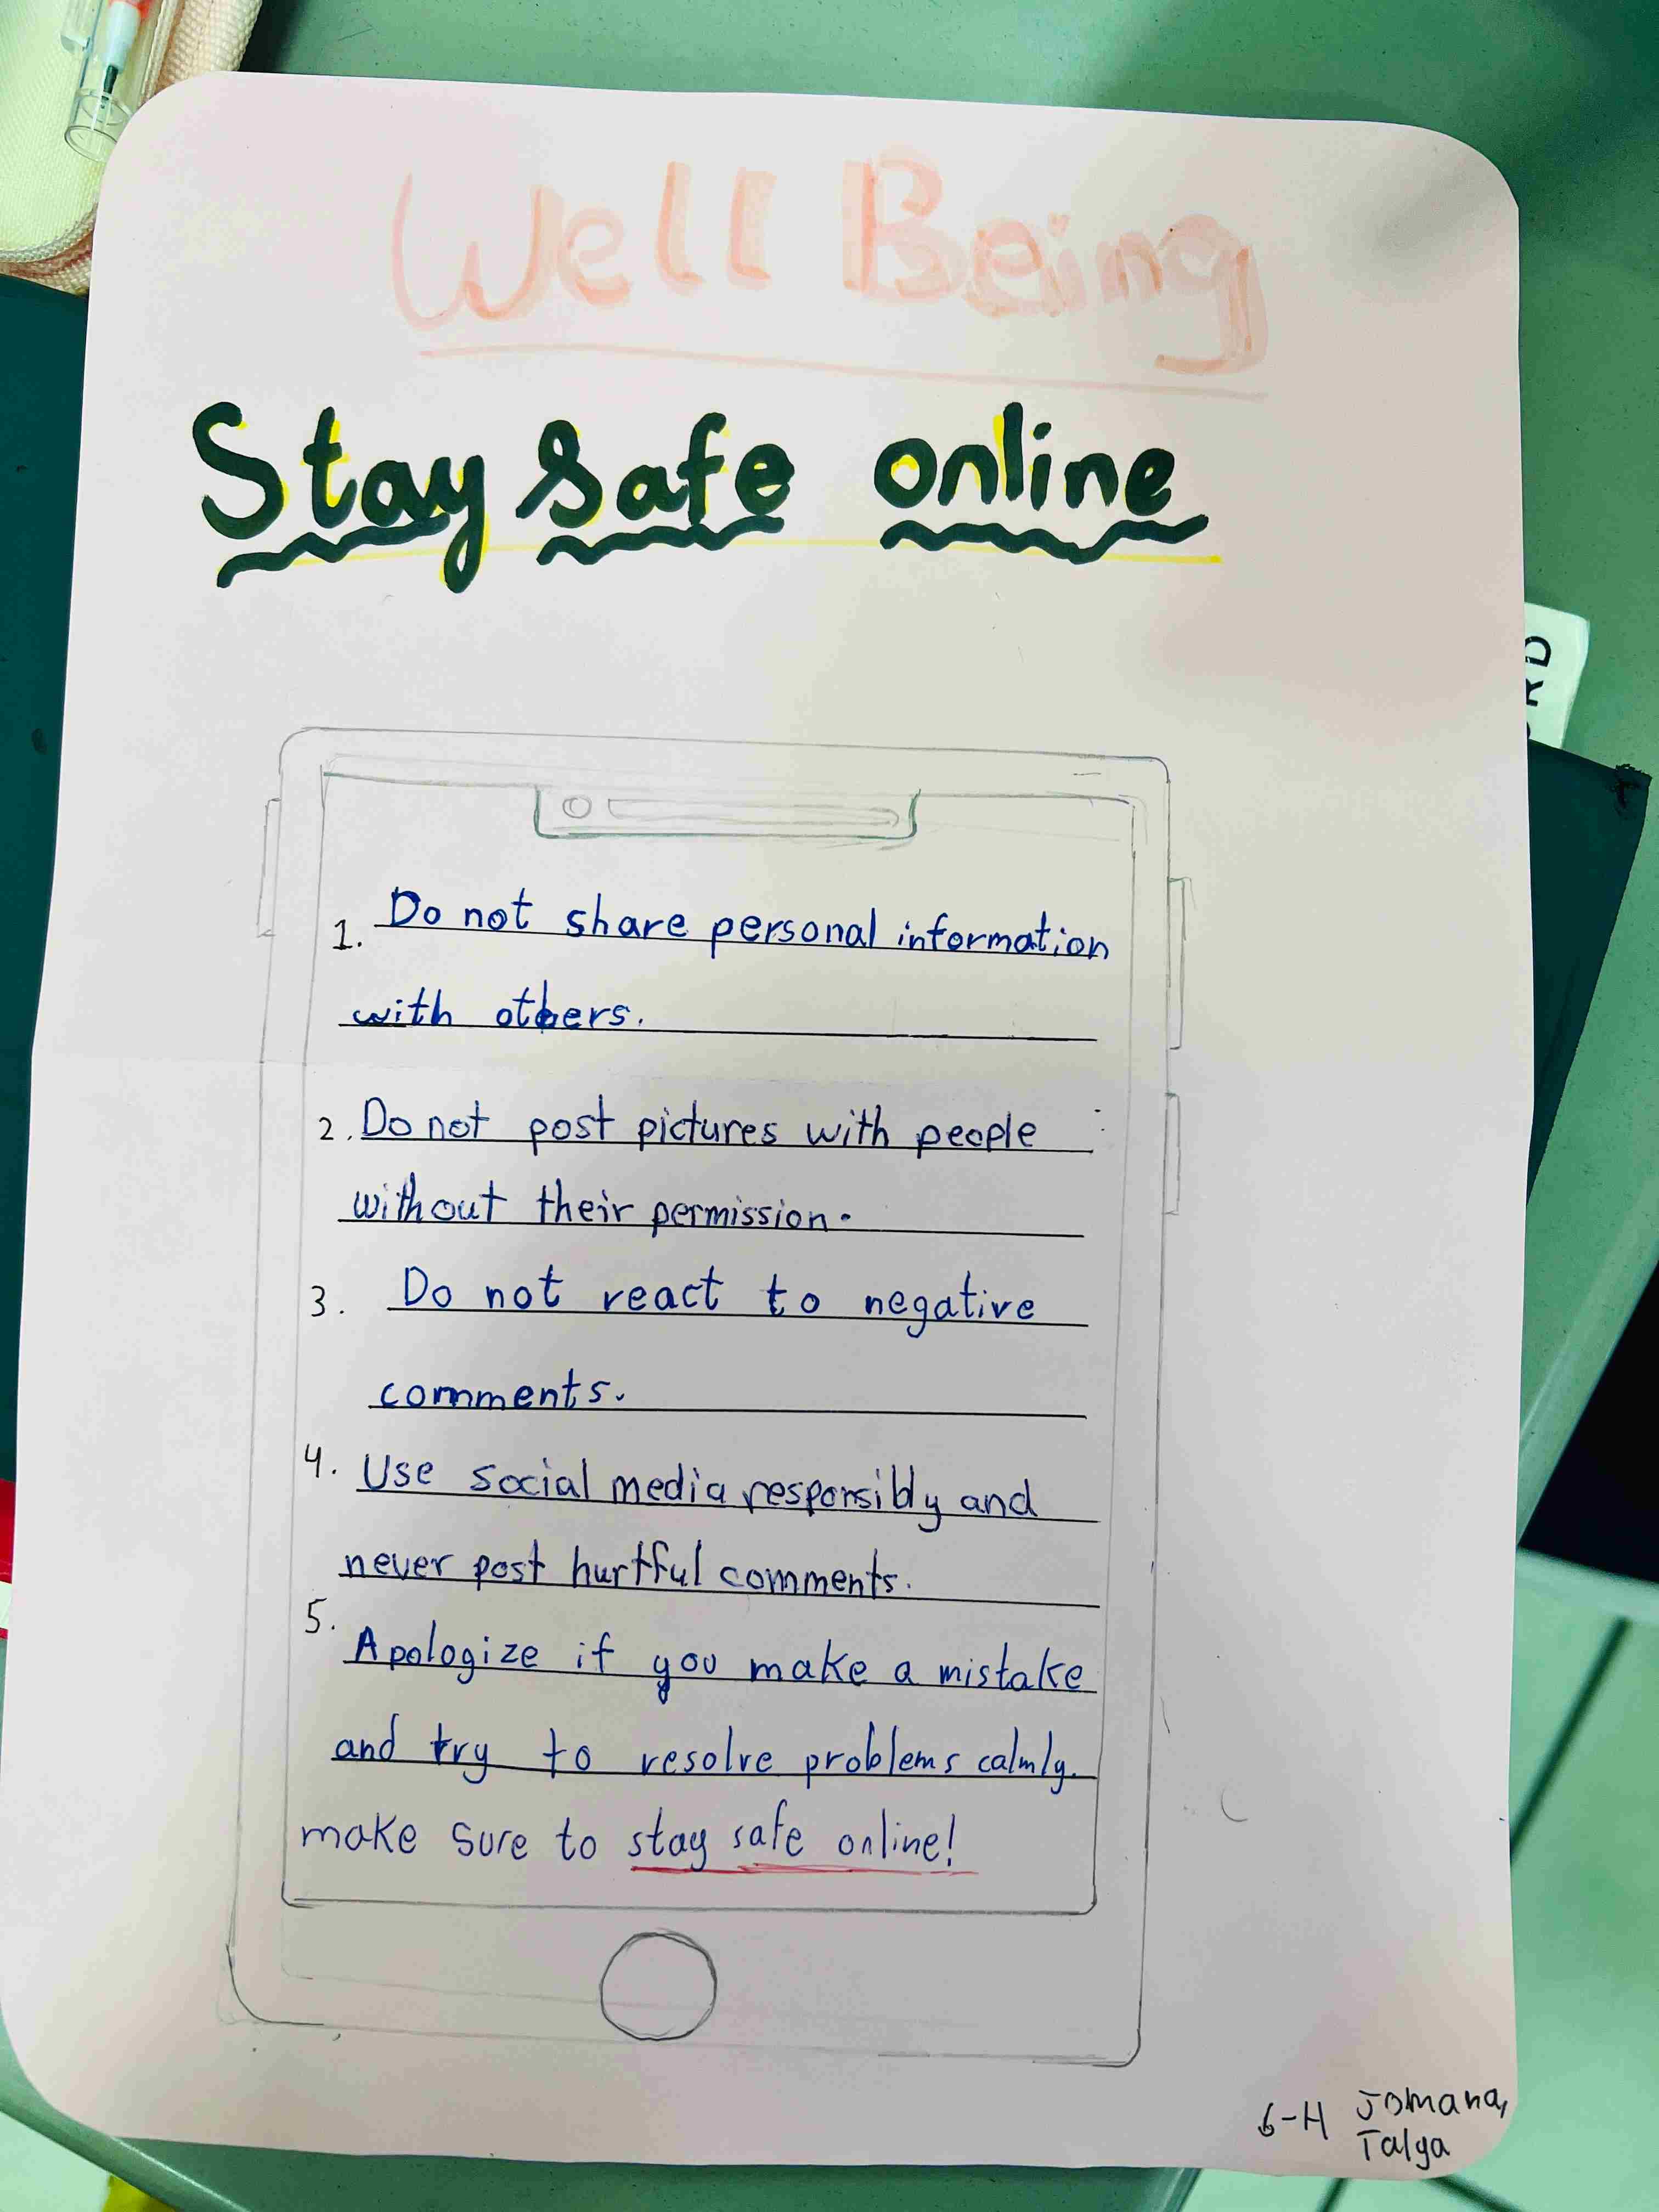 Well Being
Stay safe online
1. Do not share personal information
with others.
2. Do not post pictures with people
without their permission.
3. Do not react to negative
comments.
4. Use social media responsibly and
never post hurtful comments.
5. Apologize if you make a mistake
and try to resolve problems calmly.
make sure to stay safe online!
6-H Jomana,
Talya